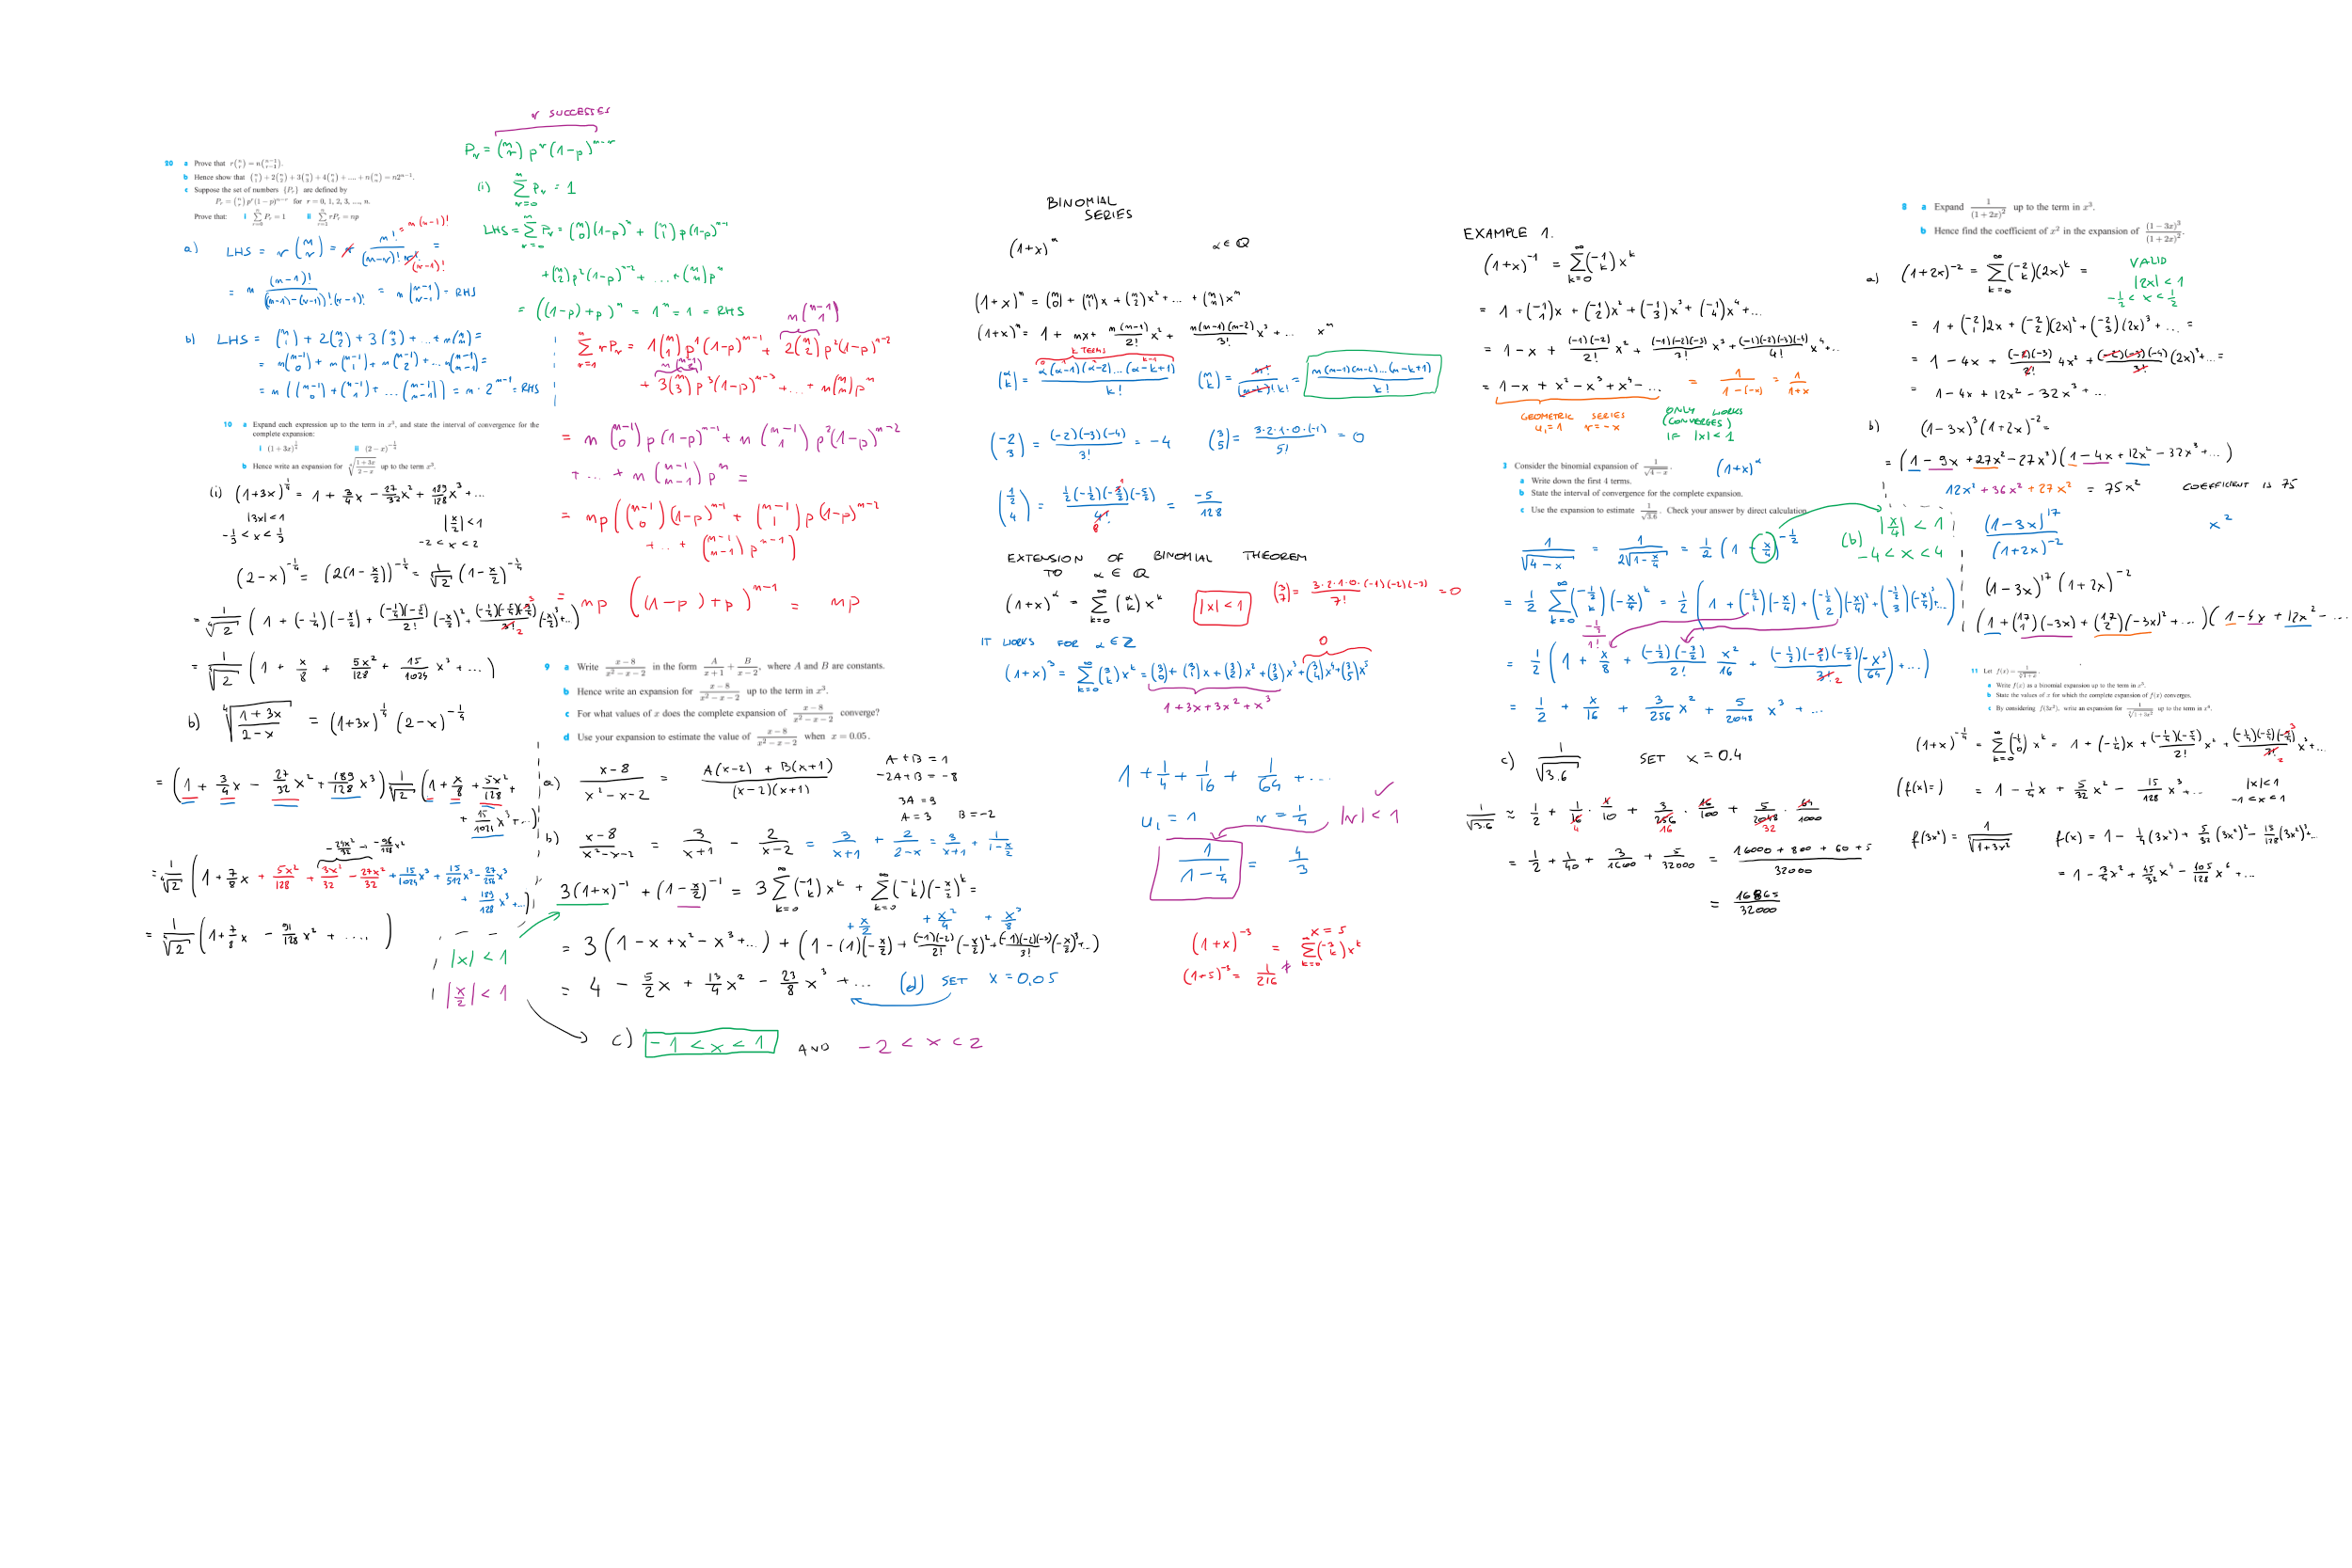 r SUCCESSES
P_r = (n r) p^r (1-p)^{n-r}
20 a Prove that r(n r) = n(n-1 r-1).
b Hence show that (n 1) + 2(n 2) + 3(n 3) + 4(n 4) + .... + n(n n) = n2^{n-1}.
c Suppose the set of numbers {P_r} are defined by
P_r = (n r) p^r (1-p)^{n-r} for r = 0, 1, 2, 3, ...., n.
Prove that: i Σ_{r=0}^{n} P_r = 1 ii Σ_{r=1}^{n} rP_r = np
(i) Σ_{r=0}^{n} P_r = 1
LHS = Σ_{r=0}^{n} P_r = (n 0)(1-p)^n + (n 1) p(1-p)^{n-1}
+ (n 2) p²(1-p)^{n-2} + ... + (n n) p^n
= ((1-p)+p)^n = 1^n = 1 = RHS
a) LHS = r (n r) = r n!/((n-r)! r!) =
= n(n-1)!
(r-1)!
= n (n-1)!/((n-1)-(r-1))!(r-1)! = n (n-1 r-1) = RHS
b) LHS = (n 1) + 2(n 2) + 3(n 3) + ... + n(n n) =
= n(n-1 0) + n(n-1 1) + n(n-1 2) + ... n(n-1 n-1) =
= n((n-1 0) + (n-1 1) + ... (n-1 n-1)) = n · 2^{n-1} = RHS
n(n-1 1)
Σ_{r=1}^{n} rP_r = 1(n 1) p^1 (1-p)^{n-1} + 2(n 2) p²(1-p)^{n-2}
+ 3(n 3) p³(1-p)^{n-3} + ... + n(n n) p^n
= n (n-1 0) p(1-p)^{n-1} + n (n-1 1) p²(1-p)^{n-2}
+ ... + n (n-1 n-1) p^n =
= np((n-1 0)(1-p)^{n-1} + (n-1 1) p(1-p)^{n-2}
+ ... + (n-1 n-1) p^{n-1})
= np ((1-p)+p)^{n-1} = np
10 a Expand each expression up to the term in x³, and state the interval of convergence for the
complete expansion:
i (1+3x)^{1/4} ii (2-x)^{-1/4}
b Hence write an expansion for ∜((1+3x)/(2-x)) up to the term x³.
(i) (1+3x)^{1/4} = 1 + 3/4 x - 27/32 x² + 189/128 x³ + ...
|3x| < 1
-1/3 < x < 1/3
|x/2| < 1
-2 < x < 2
(2-x)^{-1/4} = (2(1-x/2))^{-1/4} = 1/∜2 (1-x/2)^{-1/4}
= 1/∜2 (1 + (-1/4)(-x/2) + (-1/4)(-5/4)/2! (-x/2)² + (-1/4)(-5/4)(-9/4)/3! (-x/2)³ + ...)
= 1/∜2 (1 + x/8 + 5x²/128 + 15/1024 x³ + ...)
b) ∜((1+3x)/(2-x)) = (1+3x)^{1/4} (2-x)^{-1/4}
= (1 + 3/4 x - 27/32 x² + 189/128 x³) 1/∜2 (1 + x/8 + 5x²/128 +
+ 15/1024 x³ + ...)
= 1/∜2 (1 + 7/8 x + 5x²/128 + 3x²/32 - 27x²/32 + 15/1024 x³ + 15/512 x³ - 27/256 x³
+ 189/128 x³ + ...)
= 1/∜2 (1 + 7/8 x - 91/128 x² + ....)
|x| < 1
|x/2| < 1
9 a Write (x-8)/(x²-x-2) in the form A/(x+1) + B/(x-2), where A and B are constants.
b Hence write an expansion for (x-8)/(x²-x-2) up to the term in x³.
c For what values of x does the complete expansion of (x-8)/(x²-x-2) converge?
d Use your expansion to estimate the value of (x-8)/(x²-x-2) when x = 0.05.
a) (x-8)/(x²-x-2) = (A(x-2) + B(x+1))/((x-2)(x+1))
A+B = 1
-2A+B = -8
3A = 9
A = 3 B = -2
b) (x-8)/(x²-x-2) = 3/(x+1) - 2/(x-2) = 3/(x+1) + 2/(2-x) = 3/(x+1) + 1/(1-x/2)
3(1+x)^{-1} + (1-x/2)^{-1} = 3 Σ_{k=0}^{∞} (-1 k) x^k + Σ_{k=0}^{∞} (-1 k)(-x/2)^k =
+ x/2 + x²/4 + x³/8
= 3(1 - x + x² - x³ + ...) + (1 - (1)(-x/2) + (-1)(-2)/2! (-x/2)² + (-1)(-2)(-3)/3! (-x/2)³ + ...)
= 4 - 5/2 x + 13/4 x² - 23/8 x³ + ... (d) SET x = 0.05
c) -1 < x < 1 AND -2 < x < 2
BINOMIAL
SERIES
(1+x)^n α ∈ ℚ
(1+x)^n = (n 0) + (n 1)x + (n 2)x² + ... + (n n)x^n
(1+x)^n = 1 + nx + n(n-1)/2! x² + n(n-1)(n-2)/3! x³ + ... x^n
k TERMS
(α k) = α(α-1)(α-2)...(α-k+1)/k! (n k) = n!/((n-k)! k!) = n(n-1)(n-2)...(n-k+1)/k!
(-2 3) = (-2)(-3)(-4)/3! = -4 (3 5) = 3·2·1·0·(-1)/5! = 0
(1/2 4) = 1/2(-1/2)(-3/2)(-5/2)/4! = -5/128
EXTENSION OF BINOMIAL THEOREM
TO α ∈ ℚ
(1+x)^α = Σ_{k=0}^{∞} (α k) x^k |x| < 1 (3 7) = 3·2·1·0·(-1)(-2)(-3)/7! = 0
IT WORKS FOR α ∈ ℤ
0
(1+x)³ = Σ_{k=0}^{∞} (3 k) x^k = (3 0) + (3 1)x + (3 2)x² + (3 3)x³ + (3 4)x⁴ + (3 5)x⁵
1 + 3x + 3x² + x³
1 + 1/4 + 1/16 + 1/64 + ...
u₁ = 1 r = 1/4 |r| < 1
1/(1-1/4) = 4/3
x = 5
(1+x)^{-3} = Σ_{k=0}^{∞} (-3 k) x^k
(1+5)^{-3} = 1/216 ≠
EXAMPLE 1.
(1+x)^{-1} = Σ_{k=0}^{∞} (-1 k) x^k
= 1 + (-1 1)x + (-1 2)x² + (-1 3)x³ + (-1 4)x⁴ + ...
= 1 - x + (-1)(-2)/2! x² + (-1)(-2)(-3)/3! x³ + (-1)(-2)(-3)(-4)/4! x⁴ + ...
= 1 - x + x² - x³ + x⁴ - ... = 1/(1-(-x)) = 1/(1+x)
GEOMETRIC SERIES
u₁ = 1 r = -x
ONLY WORKS
(CONVERGES)
IF |x| < 1
3 Consider the binomial expansion of 1/√(4-x). (1+x)^α
a Write down the first 4 terms.
b State the interval of convergence for the complete expansion.
c Use the expansion to estimate 1/√3.6. Check your answer by direct calculation.
1/√(4-x) = 1/(2√(1-x/4)) = 1/2 (1 - x/4)^{-1/2}
(b) |x/4| < 1
-4 < x < 4
= 1/2 Σ_{k=0}^{∞} (-1/2 k)(-x/4)^k = 1/2 (1 + (-1/2 1)(-x/4) + (-1/2 2)(-x/4)² + (-1/2 3)(-x/4)³ + ...)
-1/2 / 1!
= 1/2 (1 + x/8 + (-1/2)(-3/2)/2! x²/16 + (-1/2)(-3/2)(-5/2)/3! (-x³/64) + ...)
= 1/2 + x/16 + 3/256 x² + 5/2048 x³ + ...
c) 1/√3.6 SET x = 0.4
1/√3.6 ≈ 1/2 + 1/16 · 4/10 + 3/256 · 16/100 + 5/2048 · 64/1000
= 1/2 + 1/40 + 3/1600 + 5/32000 = (16000 + 800 + 60 + 5)/32000
= 16865/32000
8 a Expand 1/(1+2x)² up to the term in x³.
b Hence find the coefficient of x² in the expansion of (1-3x)³/(1+2x)².
a) (1+2x)^{-2} = Σ_{k=0}^{∞} (-2 k)(2x)^k =
VALID
|2x| < 1
-1/2 < x < 1/2
= 1 + (-2 1)2x + (-2 2)(2x)² + (-2 3)(2x)³ + ... =
= 1 - 4x + (-2)(-3)/2! 4x² + (-2)(-3)(-4)/3! (2x)³ + ... =
= 1 - 4x + 12x² - 32x³ + ...
b) (1-3x)³(1+2x)^{-2} =
= (1 - 9x + 27x² - 27x³)(1 - 4x + 12x² - 32x³ + ...)
12x² + 36x² + 27x² = 75x² COEFFICIENT IS 75
(1-3x)^{17}/(1+2x)^{-2} x²
(1-3x)^{17} (1+2x)^{-2}
(1 + (17 1)(-3x) + (17 2)(-3x)² + ...)(1 - 4x + 12x² - ...
11 Let f(x) =
a Write f(x) as a binomial expansion up to the term in x³.
b State the values of x for which the complete expansion of f(x) converges.
c By considering f(3x²), write an expansion for up to the term in x⁶.
(1+x)^{-1/4} = Σ_{k=0}^{∞} x^k = 1 + (-1/4)x + (-1/4)(-5/4)/2! x² + (-1/4)(-5/4)(-9/4)/3! x³ + ...
(f(x)=) = 1 - 1/4 x + 5/32 x² - 15/128 x³ + ... |x| < 1
-1 < x < 1
f(3x²) = 1/∜(1+3x²) f(x) = 1 - 1/4 (3x²) + 5/32 (3x²)² - 15/128 (3x²)³ + ...
= 1 - 3/4 x² + 45/32 x⁴ - 405/128 x⁶ + ...